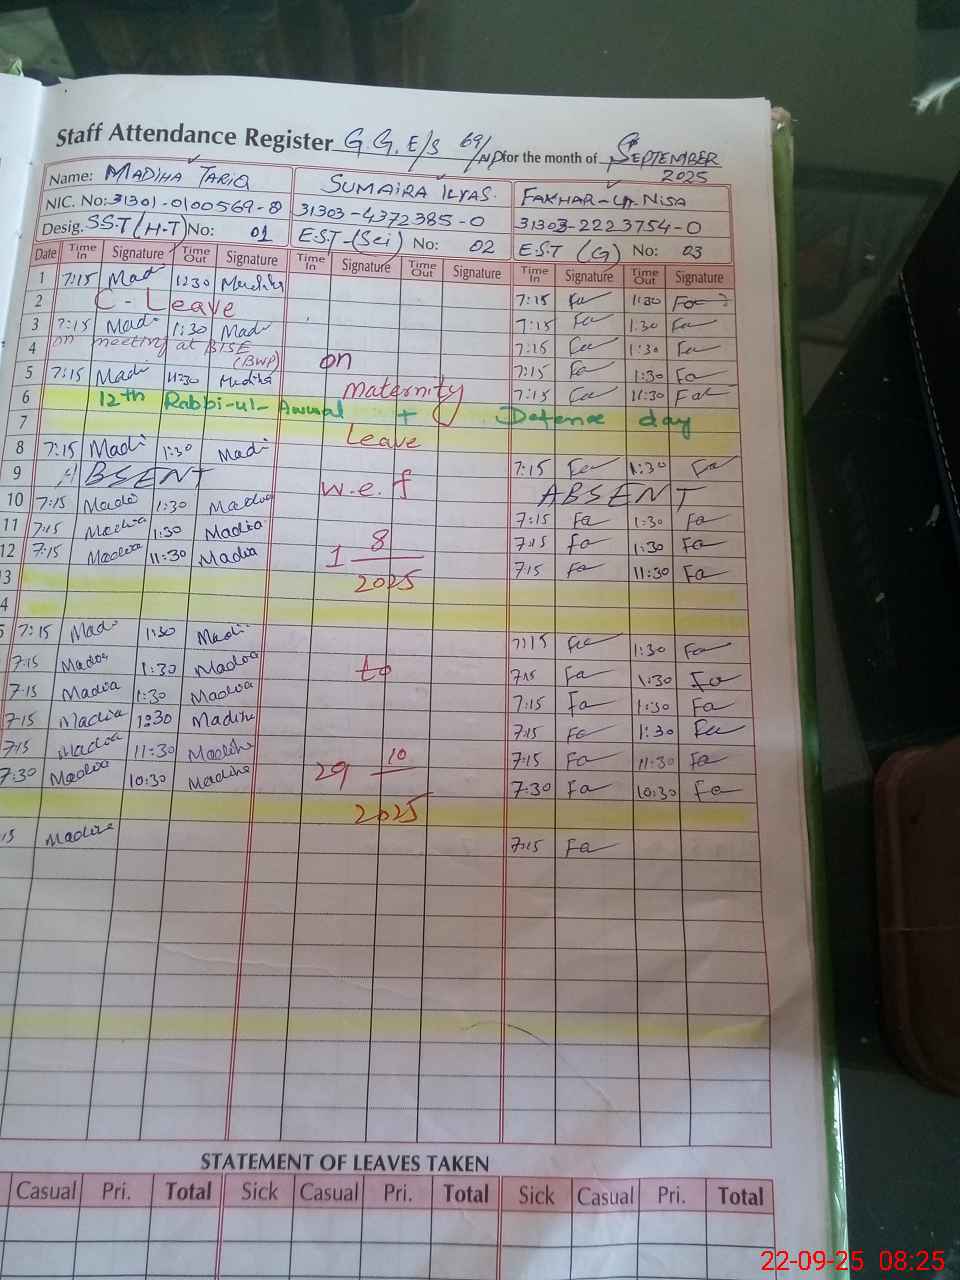 Staff Attendance Register G.G.E/S 69/NP for the month of SEPTEMBER 2025
Name: MADIHA TARIQ SUMAIRA ILYAS. FAKHAR-UN-NISA
NIC. No: 31301-0100569-8 31303-4372385-0 31303-2223754-0
Desig. SST (H-T) No: 01 EST-(Sci) No: 02 EST (G) No: 03
Date Time In Signature Time Out Signature Time In Signature Time Out Signature Time In Signature Time Out Signature
1 7:15 Madi 1:30 Madiha 7:15 Fa 1:30 Fa
2 C - Leave 7:15 Fa 1:30 Fa
3 7:15 Madi 1:30 Madi 7:15 Fa 1:30 Fa
4 on meeting at BISE (BWP) on 7:15 Fa 1:30 Fa
5 7:15 Madi 11:30 Madiha maternity 7:15 Fa 11:30 Fa
6 12th Rabbi-ul-Awwal + Defence day
7 Leave
8 7:15 Madi 1:30 Madi 7:15 Fa 1:30 Fa
9 ABSENT w.e.f ABSENT
10 7:15 Madiha 1:30 Madiha 7:15 Fa 1:30 Fa
11 7:15 Madiha 1:30 Madiha 7:15 Fa 1:30 Fa
12 7:15 Madiha 11:30 Madiha 1 8 7:15 Fa 11:30 Fa
13 2025
4
5 7:15 Madi 1:30 Madi 7:15 Fa 1:30 Fa
7:15 Madiha 1:30 Madiha to 7:15 Fa 1:30 Fa
7:15 Madiha 1:30 Madiha 7:15 Fa 1:30 Fa
7:15 Madiha 1:30 Madiha 7:15 Fa 1:30 Fa
7:15 Madiha 11:30 Madiha 7:15 Fa 11:30 Fa
7:30 Madiha 10:30 Madiha 29 10 7:30 Fa 10:30 Fa
2025
15 Madiha 7:15 Fa
STATEMENT OF LEAVES TAKEN
Casual Pri. Total Sick Casual Pri. Total Sick Casual Pri. Total
22-09-25 08:25